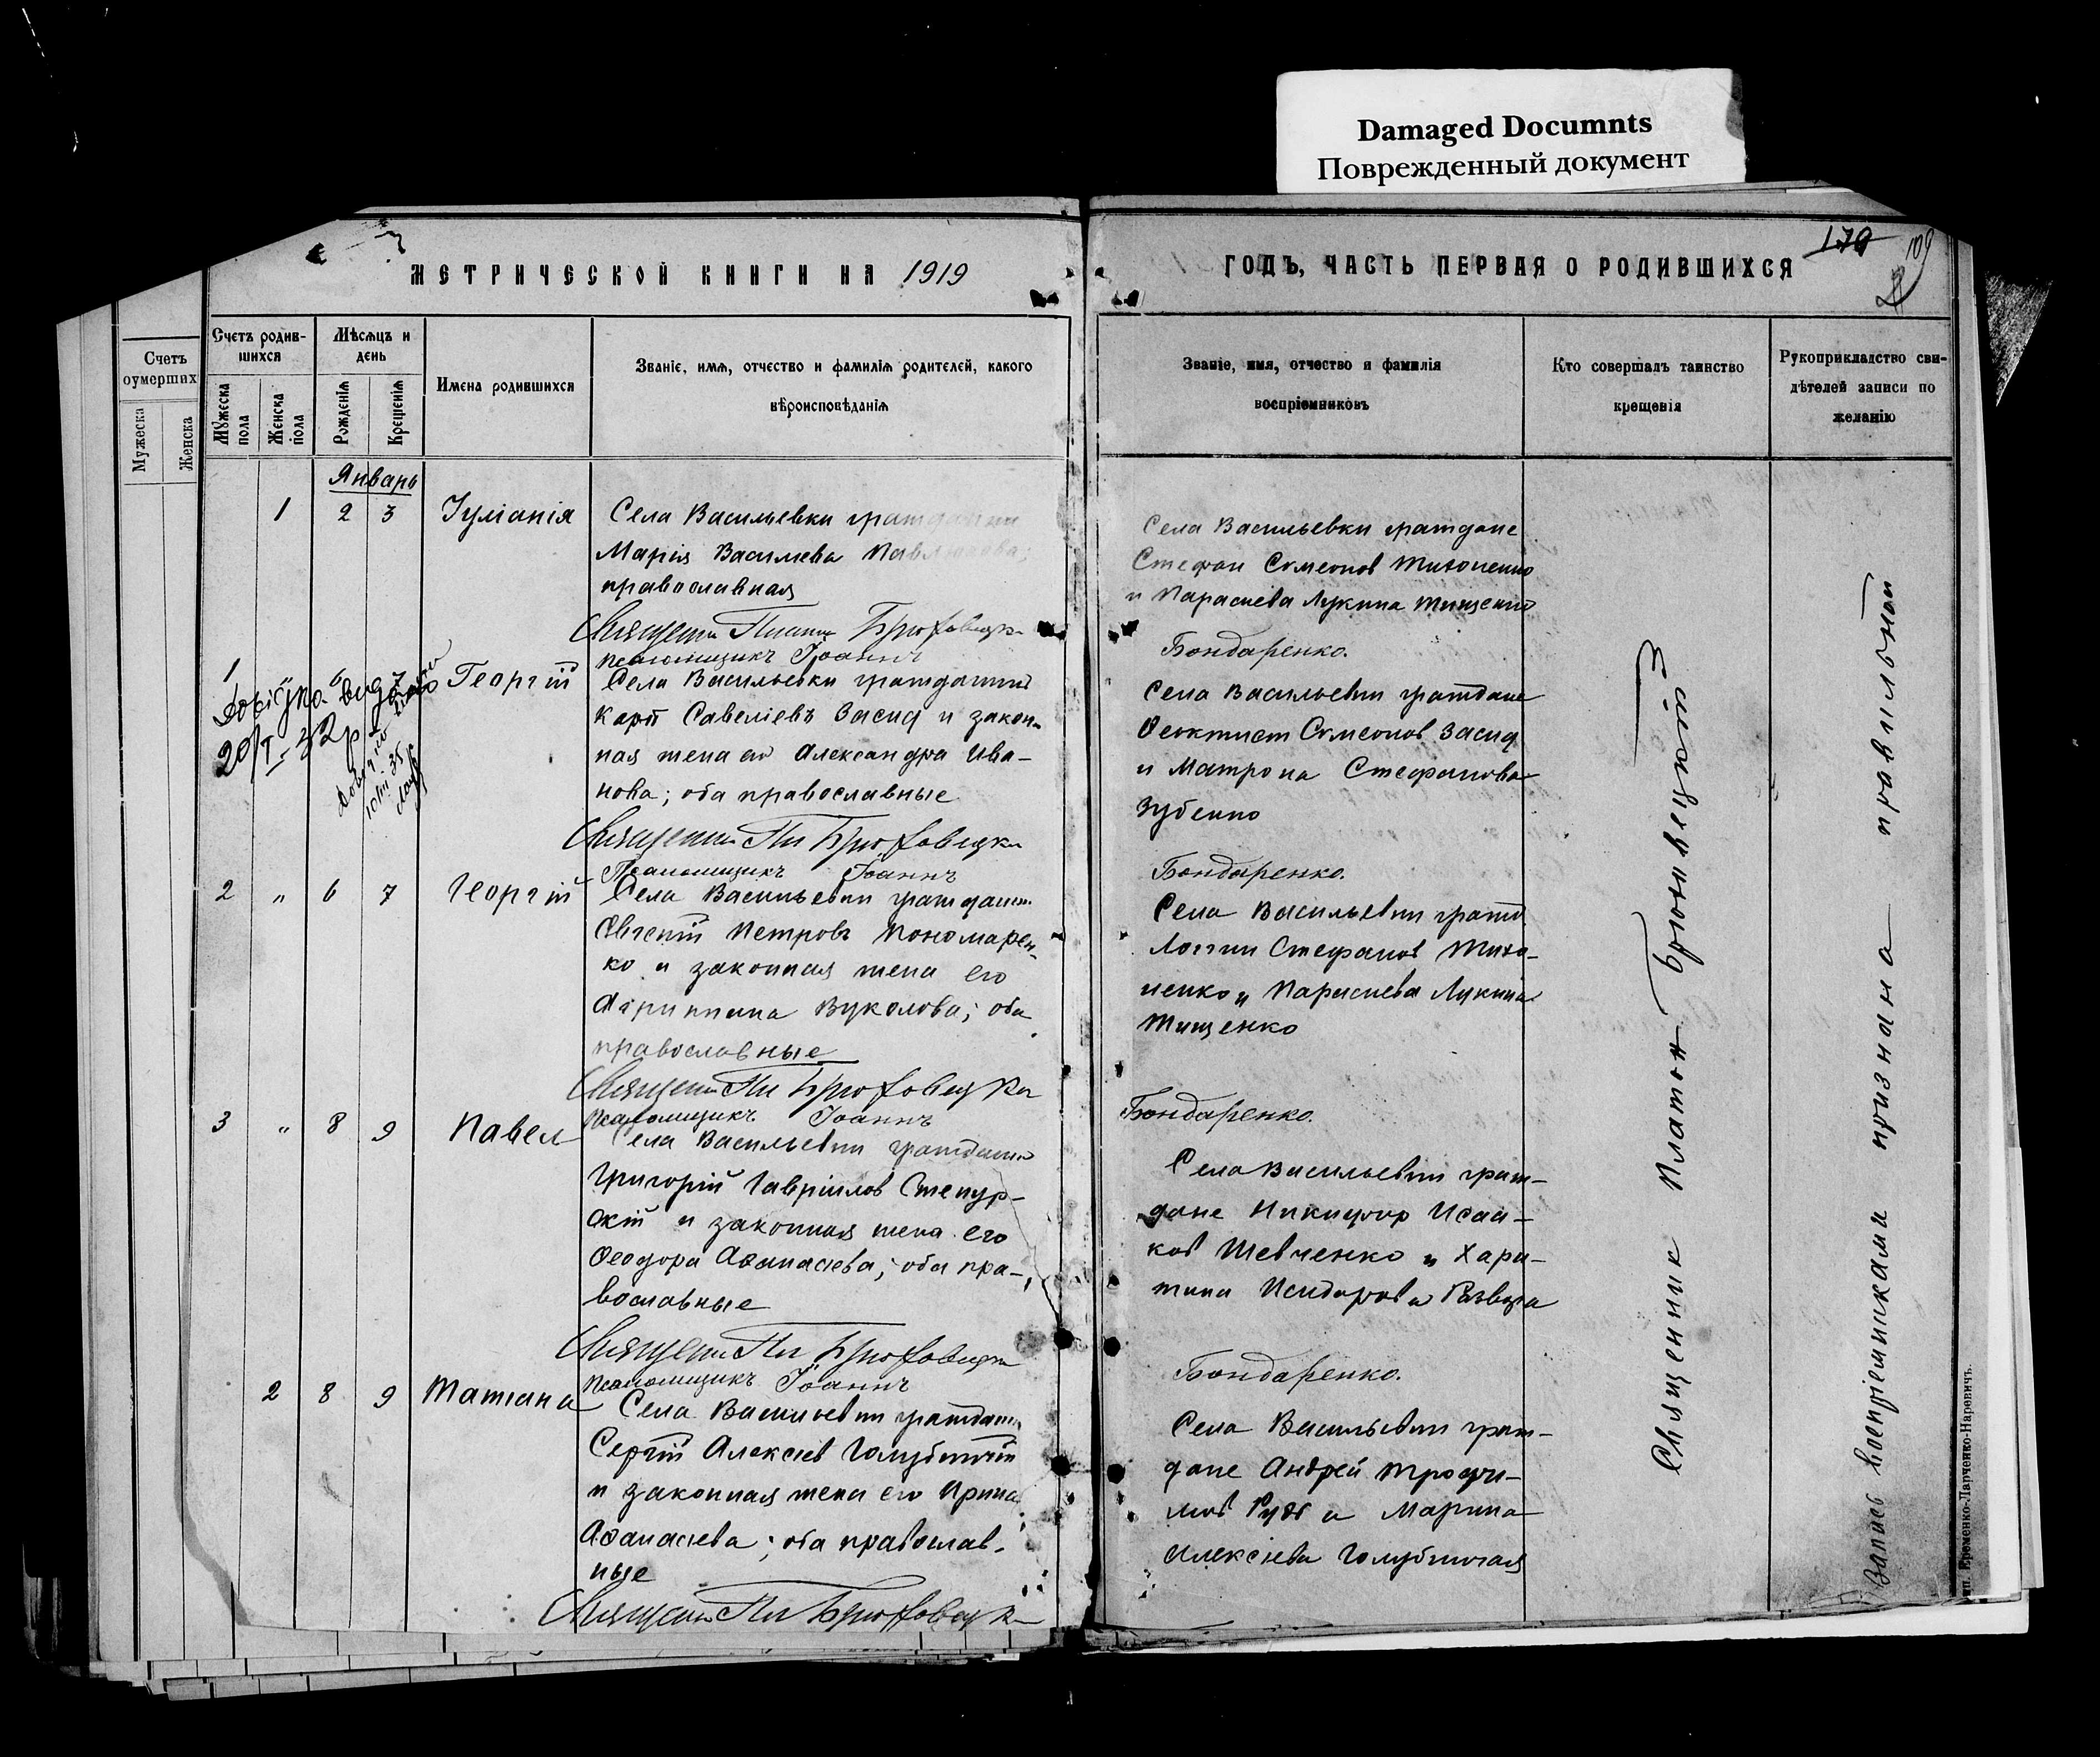 Damaged Documnts
Поврежденный документ
МЕТРИЧЕСКОЙ КНИГИ НА 1919
ГОДЪ, ЧАСТЬ ПЕРВАЯ О РОДИВШИХСЯ
170
109
Счетъ
оумерших
Мужеска
Женска
Счетъ родив-
шихся
Мужеска
пола
Женска
пола
Мѣсяцъ и
день
Рожденія
Крещенія
Имена родившихся
Званіе, имя, отчество и фамилія родителей, какого
вѣроисповѣданія
Званіе, имя, отчество и фамилія
воспріемниковъ
Кто совершалъ таинство
крещенія
Рукоприкладство сви-
дѣтелей записи по
желанію
Январь
1 2 3 Іуліанія
Села Васильевки гражданка
Марія Васильева
православная
Священн Платон Брюховецкі
Псаломщикъ Іоаннъ
Села Васильевки граждане
Стефан Симеонов Тихоненко
и Параскева Лукина Тищенко
Бондаренко.
1 6 7 Георгій
20/I-42 р
Села Васильевки гражданин
Карп Савеліевъ Засид и закон-
ная жена его Александра Ива-
нова; оба православные
Священн Пл Брюховецки
Псаломщикъ Іоаннъ
Села Васильевки граждане
Феоктист Симеонов Засид
и Матрона Стефанова
Зубенко
Бондаренко.
2 " 6 7 Георгій
Села Васильевки граждан
Евгеній Петровъ Пономарен-
ко и законная жена его
Агриппина Вуколова; оба
православные
Священн Пл Брюховецки
Псаломщикъ Іоаннъ
Села Васильевки гражд
Логгин Стефанов Тихо-
ненко и Параскева Лукина
Тищенко
Бондаренко.
3 " 8 9 Павел
Села Васильевки гражданин
Григорій Гавріилов Степур-
скій и законная жена его
Феодора Афанасіева; оба пра-
вославные
Священн Пл Брюховецки
Псаломщикъ Іоаннъ
Села Васильевки граж-
дане Никифор Исаа-
ков Шевченко и Хари-
тина Исидорова
Бондаренко.
2 8 9 Татіана
Села Васильевки граждан
Сергій Алексіев Голубничій
и законная жена его Ирина
Афанасіева; оба православ-
ные
Священн Пл Брюховецки
Села Васильевки граж-
дане Андрей Трофи-
мов Рудь и Марина
Алексіева Голубничая
Священник Платон Брюховецкій
Запись воспріемниками признана правильной
тип. Еременко-Ларченко-Наревичъ.